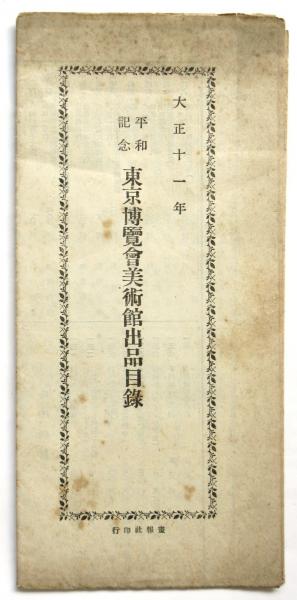 大正十一年
平和
記念
東京博覽會美術館出品目錄
畫報社印行